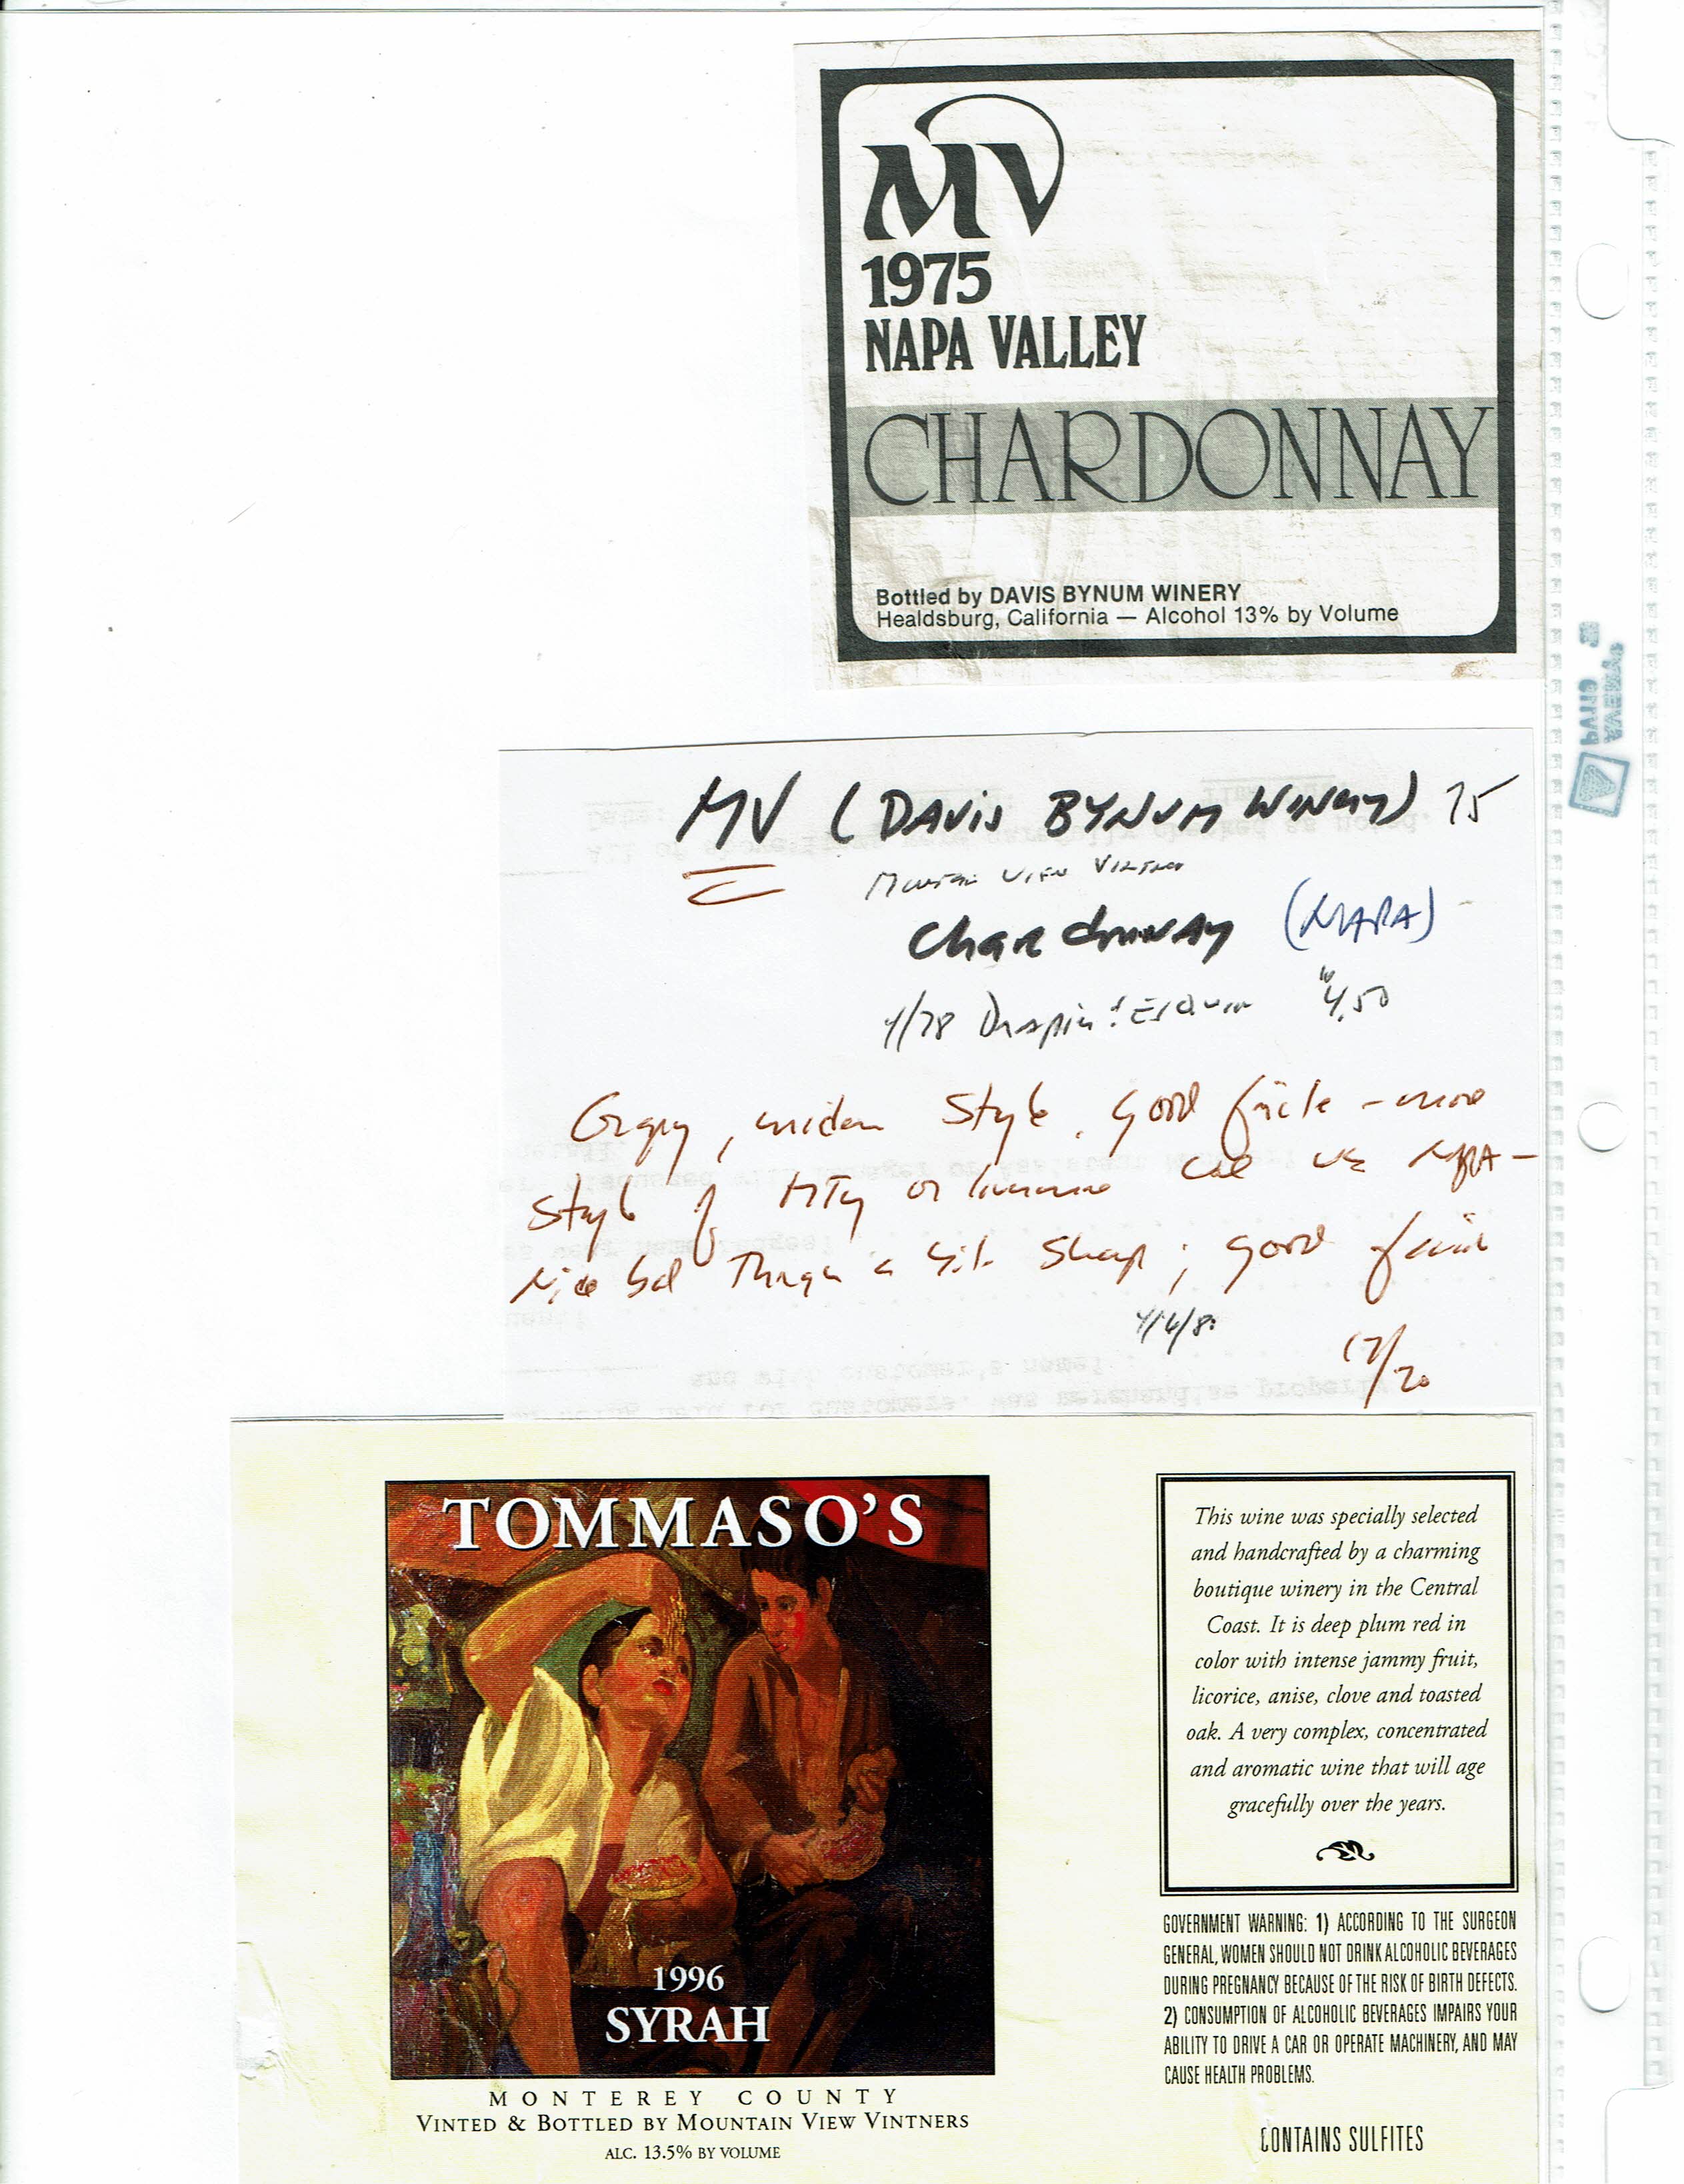 MV
1975
NAPA VALLEY
CHARDONNAY
Bottled by DAVIS BYNUM WINERY
Healdsburg, California — Alcohol 13% by Volume
MV (DAVIS BYNUM WINERY) 75
Chardonnay (NAPA)
4/78 4.50
Style. Good
Style of or
Nice a bit sharp; good finish
17/20
TOMMASO'S
1996
SYRAH
MONTEREY COUNTY
VINTED & BOTTLED BY MOUNTAIN VIEW VINTNERS
ALC. 13.5% BY VOLUME
This wine was specially selected
and handcrafted by a charming
boutique winery in the Central
Coast. It is deep plum red in
color with intense jammy fruit,
licorice, anise, clove and toasted
oak. A very complex, concentrated
and aromatic wine that will age
gracefully over the years.
GOVERNMENT WARNING: 1) ACCORDING TO THE SURGEON
GENERAL, WOMEN SHOULD NOT DRINK ALCOHOLIC BEVERAGES
DURING PREGNANCY BECAUSE OF THE RISK OF BIRTH DEFECTS.
2) CONSUMPTION OF ALCOHOLIC BEVERAGES IMPAIRS YOUR
ABILITY TO DRIVE A CAR OR OPERATE MACHINERY, AND MAY
CAUSE HEALTH PROBLEMS.
CONTAINS SULFITES